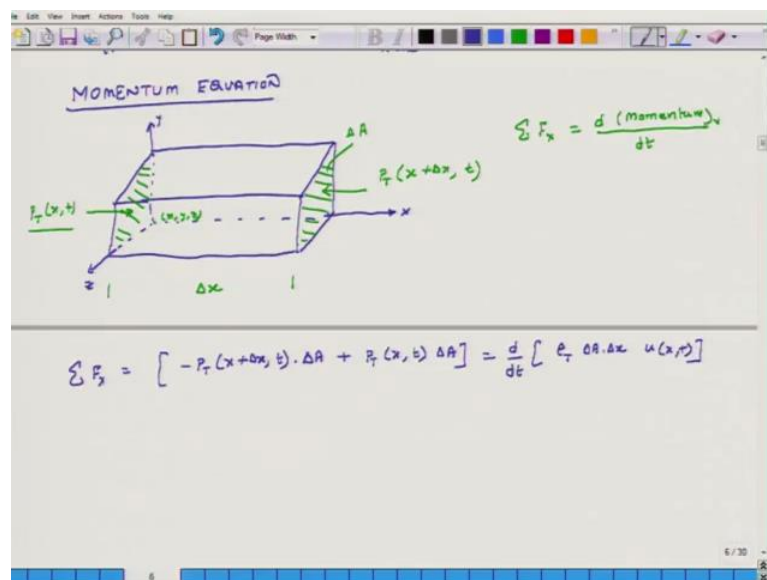 Edit View Insert Actions Tools Help
Page Width
B I
MOMENTUM EQUATION
y
ΔA
Σ F_x = d (momentum)_x / dt
P_T (x,t)
(x,y,z)
P_T (x+Δx, t)
x
z
Δx
Σ F_x = [ -P_T (x+Δx, t) . ΔA + P_T (x, t) ΔA ] = d/dt [ ρ_T ΔA.Δx u(x,t) ]
6 / 30
6